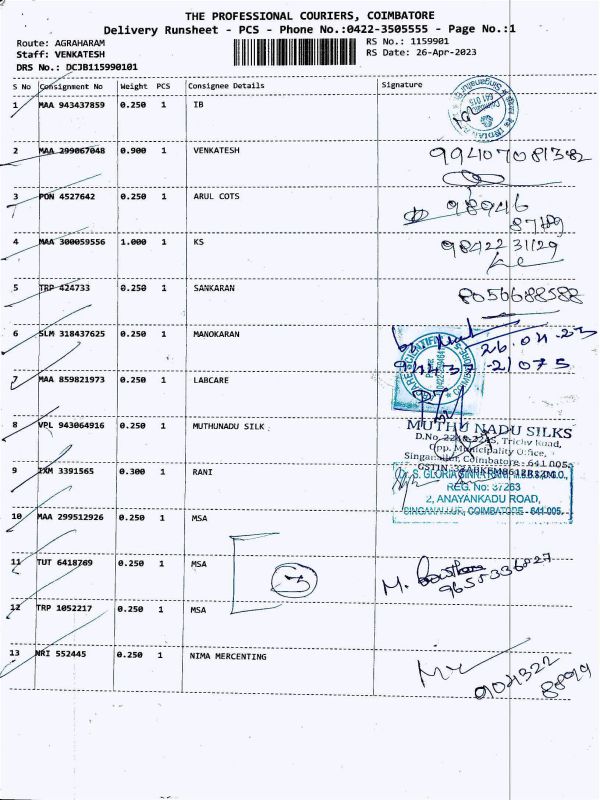 THE PROFESSIONAL COURIERS, COIMBATORE
Delivery Runsheet - PCS - Phone No.:0422-3505555 - Page No.:1
Route: AGRAHARAM
Staff: VENKATESH
DRS No.: DCJB115990101
RS No.: 1159901
RS Date: 26-Apr-2023
S No Consignment No Weight PCS Consignee Details Signature
1 MAA 943437859 0.250 1 IB
2 MAA 299067048 0.900 1 VENKATESH
99407081382
3 PON 4527642 0.250 1 ARUL COTS
98946
4 MAA 300059556 1.000 1 KS
9842231129
5 TRP 424733 0.250 1 SANKARAN
8056688588
6 SLM 318437625 0.250 1 MANOKARAN
26.04.23
7 MAA 859821973 0.250 1 LABCARE
94437 21075
8 VPL 943064916 0.250 1 MUTHUNADU SILK
MUTHU NADU SILKS
Trichy Road,
Opp. Municipality Office,
Singanallur, Coimbatore - 641 005.
9 IXM 3391565 0.300 1 RANI
REG. No: 37263
2, ANAYANKADU ROAD,
SINGANALLUR, COIMBATORE - 641 005.
10 MAA 299512926 0.250 1 MSA
11 TUT 6418769 0.250 1 MSA
3
M.
9655336827
12 TRP 1052217 0.250 1 MSA
13 NRI 552445 0.250 1 NIMA MERCENTING